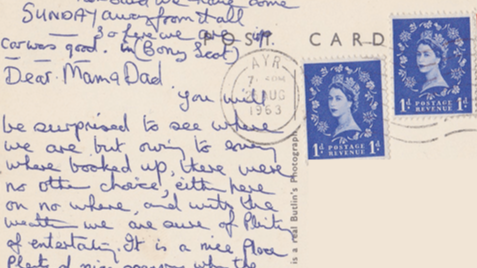 SUNDAY away from it all
30 five we are 49
Car was good. in (Bony Scot)
POST CARD
AYR
AUG
1963
1d POSTAGE REVENUE 1d
1d POSTAGE REVENUE
Dear Mam & Dad
you will
be surprised to see where
we are but owing to every
where booked up, there were
no other choice, either here
or no where, and with the
weather we are sure of Plenty
of entertaining. It is a nice Place
Plenty of nice when the
is a real Butlin's Photograph